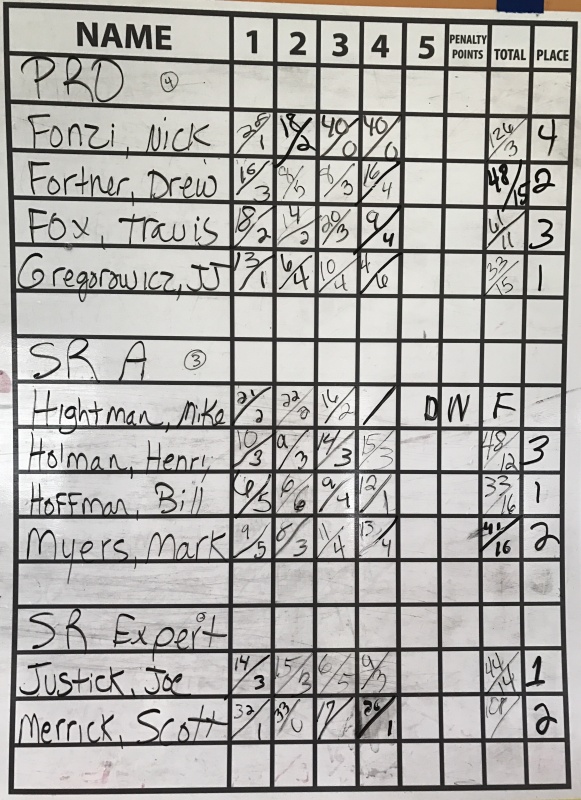 NAME 1 2 3 4 5 PENALTY POINTS TOTAL PLACE
PRO 4
Fonzi, Nick 28/1 18/2 40/0 40/0 126/3 4
Fortner, Drew 16/3 8/5 8/3 16/4 48/15 2
Fox, Travis 18/2 14/2 20/3 9/4 61/11 3
Gregorowicz, JJ 13/1 6/4 10/4 4/6 33/15 1
SR A 3
Hightman, Mike 21/2 22/0 16/2 / D N F
Holman, Henri 10/3 9/3 14/3 15/3 48/12 3
Hoffman, Bill 6/5 6/6 9/4 12/1 33/16 1
Myers, Mark 9/5 8/3 11/4 13/4 41/16 2
SR Expert
Justick, Joe 14/3 15/3 6/5 9/3 44/14 1
Merrick, Scott 32/1 33/0 17/ 26/1 2